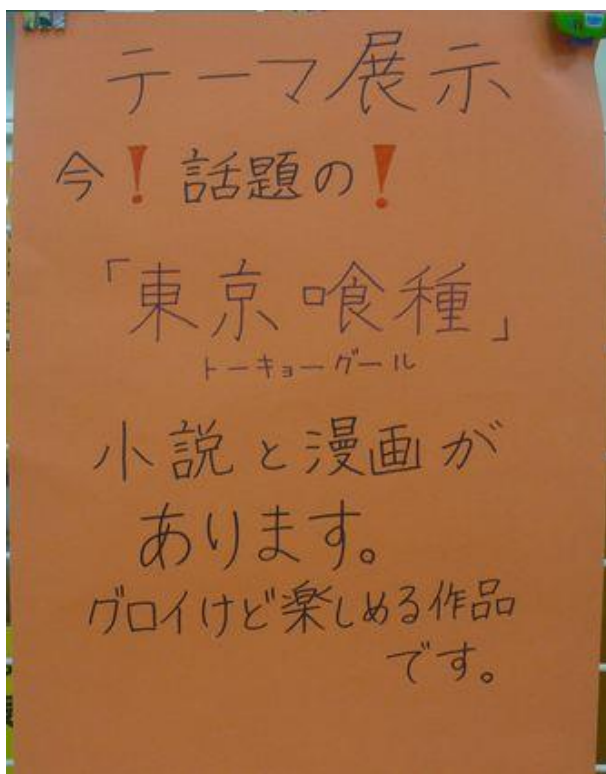 テーマ展示
今！話題の！
「東京喰種」
トーキョーグール
小説と漫画が
あります。
グロイけど楽しめる作品
です。